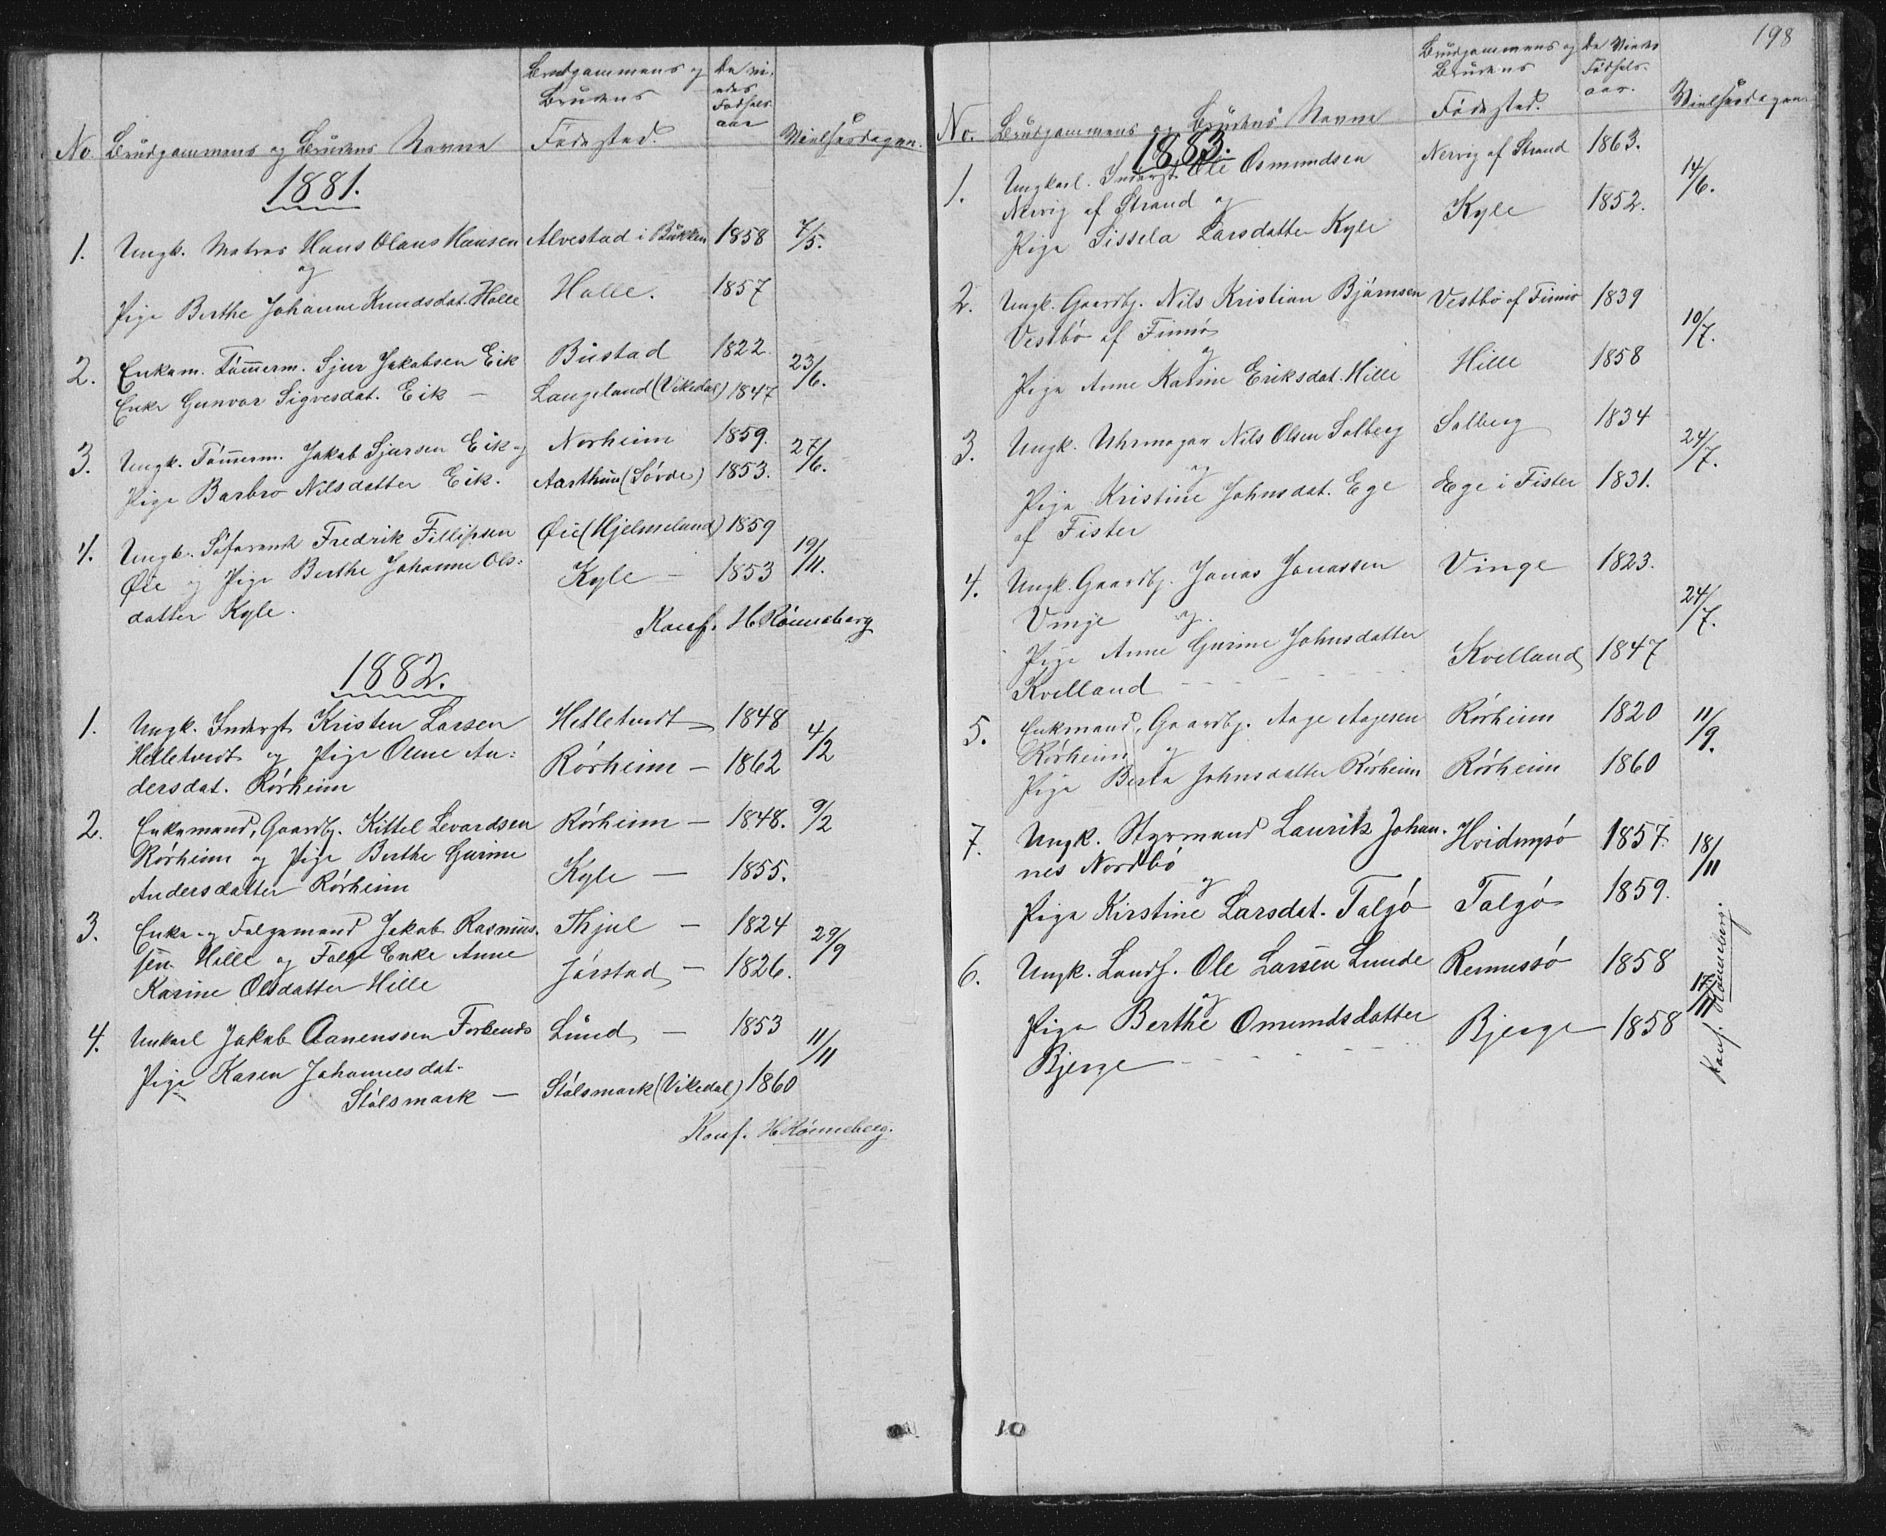 No Brudgommens og Brudens Navne
Brudgommens og
Brudens
Fødested.
De vi-
edes
Fødsels
aar
Vielsesdagen.
1881.
1. Ungk. Matros Hans Olaus Hansen Alvestad i Bukken 1858 7/5.
og
Pige Berthe Johanne Knudsdat. Halle Halle. 1857
2. Enkem. Tømmerm. Sjur Jakobsen Eik Bustad 1822. 23/6.
Enke Gunvor Sigvesdat. Eik – Langeland (Vikedal) 1847
3. Ungk. Tømmerm. Jakob Sjursen Eik og Norheim 1859. 27/6.
Pige Barbro Nilsdatter Eik. Aarthun (Søvde) 1853.
4. Ungk. Søfarend Fredrik Fillipsen Øie (Hjelmeland) 1859 19/11.
Øie og Pige Berthe Johanne Ols- Kyle – 1853
datter Kyle.
Konf. H Rønneberg
1882.
1. Ungk. Inderst Kristen Larsen Hetletvedt 1848 4/2
Hetletvedt og Pige Oline An- Rørheim – 1862
dersdat. Rørheim
2. Enkemand, Gaardbr. Kittel Levardsen Rørheim – 1848. 9/2
Rørheim og Pige Berthe Gurine Kyle – 1855.
Andersdatter Rørheim
3. Enke- og Folgemand Jakob Rasmus- Thjul – 1824 29/9
sen Hille og Folge Enke Anne Jørstad – 1826.
Karine Olsdatter Hille
4. Unkarl Jakob Aanenssen Forlends Lund – 1853 11/11
Pige Karen Johannesdat.
Stølsmark – Stølsmark (Vikedal) 1860
Konf. H Rønneberg.
198
No. Brudgommens og Brudens Navne
Brudgommens og
Brudens
Fødested.
De Viedes
Fødsels-
aar.
Vielsesdagen
1883.
1. Ungkarl. Inderst. Ole Osmundsen Nervig af Strand 1863. 14/6.
Nervig af Strand og
Pige Sissela Larsdatter Kyle Kyle 1852.
2. Ungk. Gaardbr. Nils Kristian Bjørnsen Vestbø af Finnø 1839 10/7.
Vestbø af Finnø
og
Pige Anne Karine Eriksdat. Hille Hille 1858
3. Ungk. Uhrmager Nils Olsen Solberg Solberg 1834 24/7.
og
Pige Kristine Johnsdat. Ege Ege i Fister 1831.
af Fister
4. Ungk. Gaardbr. Jonas Jonassen Vinge 1823. 24/7.
Vinje og.
Pige Anne Gurine Johnsdatter
Kvelland Kvelland 1847
5. Enkmand, Gaardbr. Aage Aagesen Rørheim 1820 11/9.
Rørheim og
Pige Berta Johnsdatter Rørheim Rørheim 1860
7. Ungk. Styrmand Laurits Johan- Hvidingsø 1857. 18/11
nes Nordbø
og
Pige Kirstine Larsdat. Talgø Talgø 1859.
6. Ungk. Landh. Ole Larsen Lunde Rennesø 1858 17/11
og
Pige Berthe Omundsdatter Bjerge – 1858
Bjerge
Konf. Rønneberg.
10